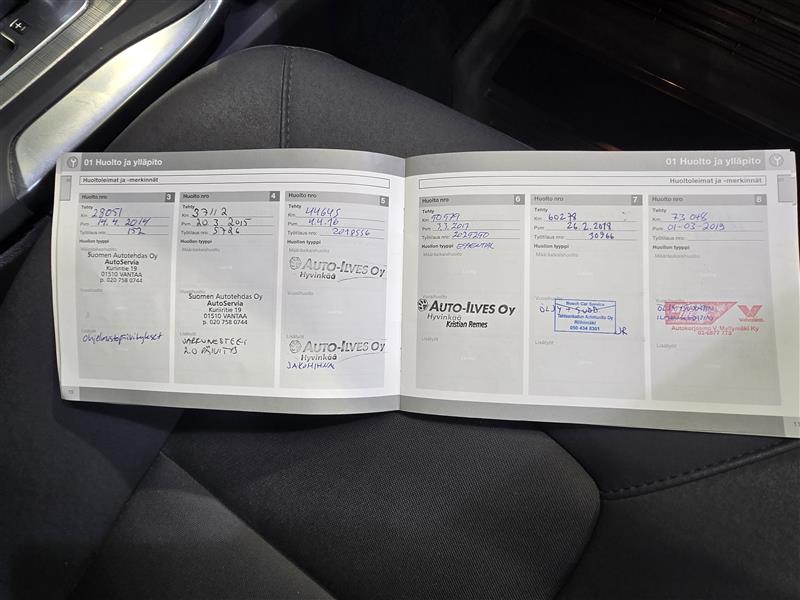 01 Huolto ja ylläpito
Huoltoleimat ja -merkinnät
Huolto nro 3
Tehty
Km 28051
Pvm 14.4.2014
Työtilaus nro: 152
Huollon tyyppi
Määräaikaishuolto
Suomen Autotehdas Oy
AutoServia
Kuriiritie 19
01510 VANTAA
p. 020 758 0744
Lisätyöt
Ohjelmistopäivitykset
Huolto nro 4
Tehty
Km 37112
Pvm 20.3.2015
Työtilaus nro: 5726
Huollon tyyppi
Määräaikaishuolto
Vuosihuolto
Suomen Autotehdas Oy
AutoServia
Kuriiritie 19
01510 VANTAA
p. 020 758 0744
Lisätyöt
JARRUNESTEET
2.0 PÄIVITYS
Huolto nro 5
Tehty
Km 44645
Pvm 4.4.16
Työtilaus nro: 2018556
Huollon tyyppi
Määräaikaishuolto
AUTO-ILVES OY
Hyvinkää
Vuosihuolto
Lisätyöt
AUTO-ILVES OY
Hyvinkää
JAKOHIHNA
10
01 Huolto ja ylläpito
Huoltoleimat ja -merkinnät
Huolto nro 6
Tehty
Km 50579
Pvm 3.3.2017
Työtilaus nro:
Huollon tyyppi
Määräaikaishuolto
Vuosihuolto
AUTO-ILVES OY
Hyvinkää
Kristian Remes
Lisätyöt
Huolto nro 7
Tehty
Km 60278
Pvm 26.2.2018
Työtilaus nro: 30966
Huollon tyyppi
Määräaikaishuolto
Vuosihuolto
Bosch Car Service
ÖLJY + SUOD.
Riihimäki
050 434 8301
Lisätyöt
Huolto nro 8
Tehty
Km 73 048
Pvm 01-03-2019
Työtilaus nro:
Huollon tyyppi
Määräaikaishuolto
Vuosihuolto
Autokorjaamo V. Mellymäki Ky
Lisätyöt